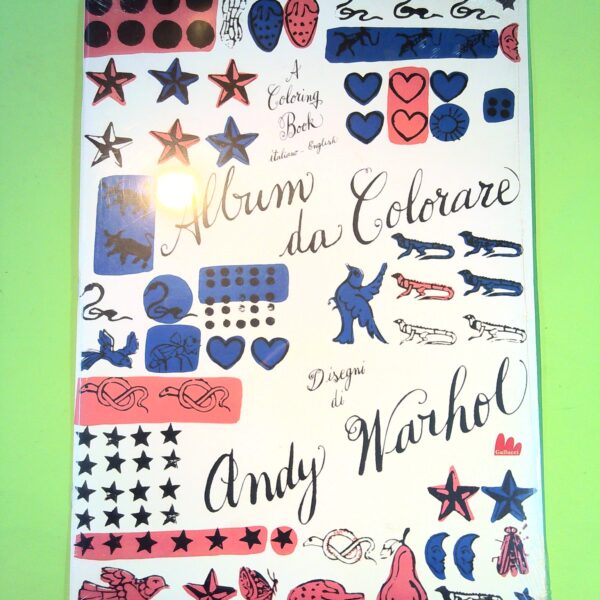 A
Coloring
Book
italiano - English
Album
da Colorare
Disegni
di
Andy Warhol
Gallucci